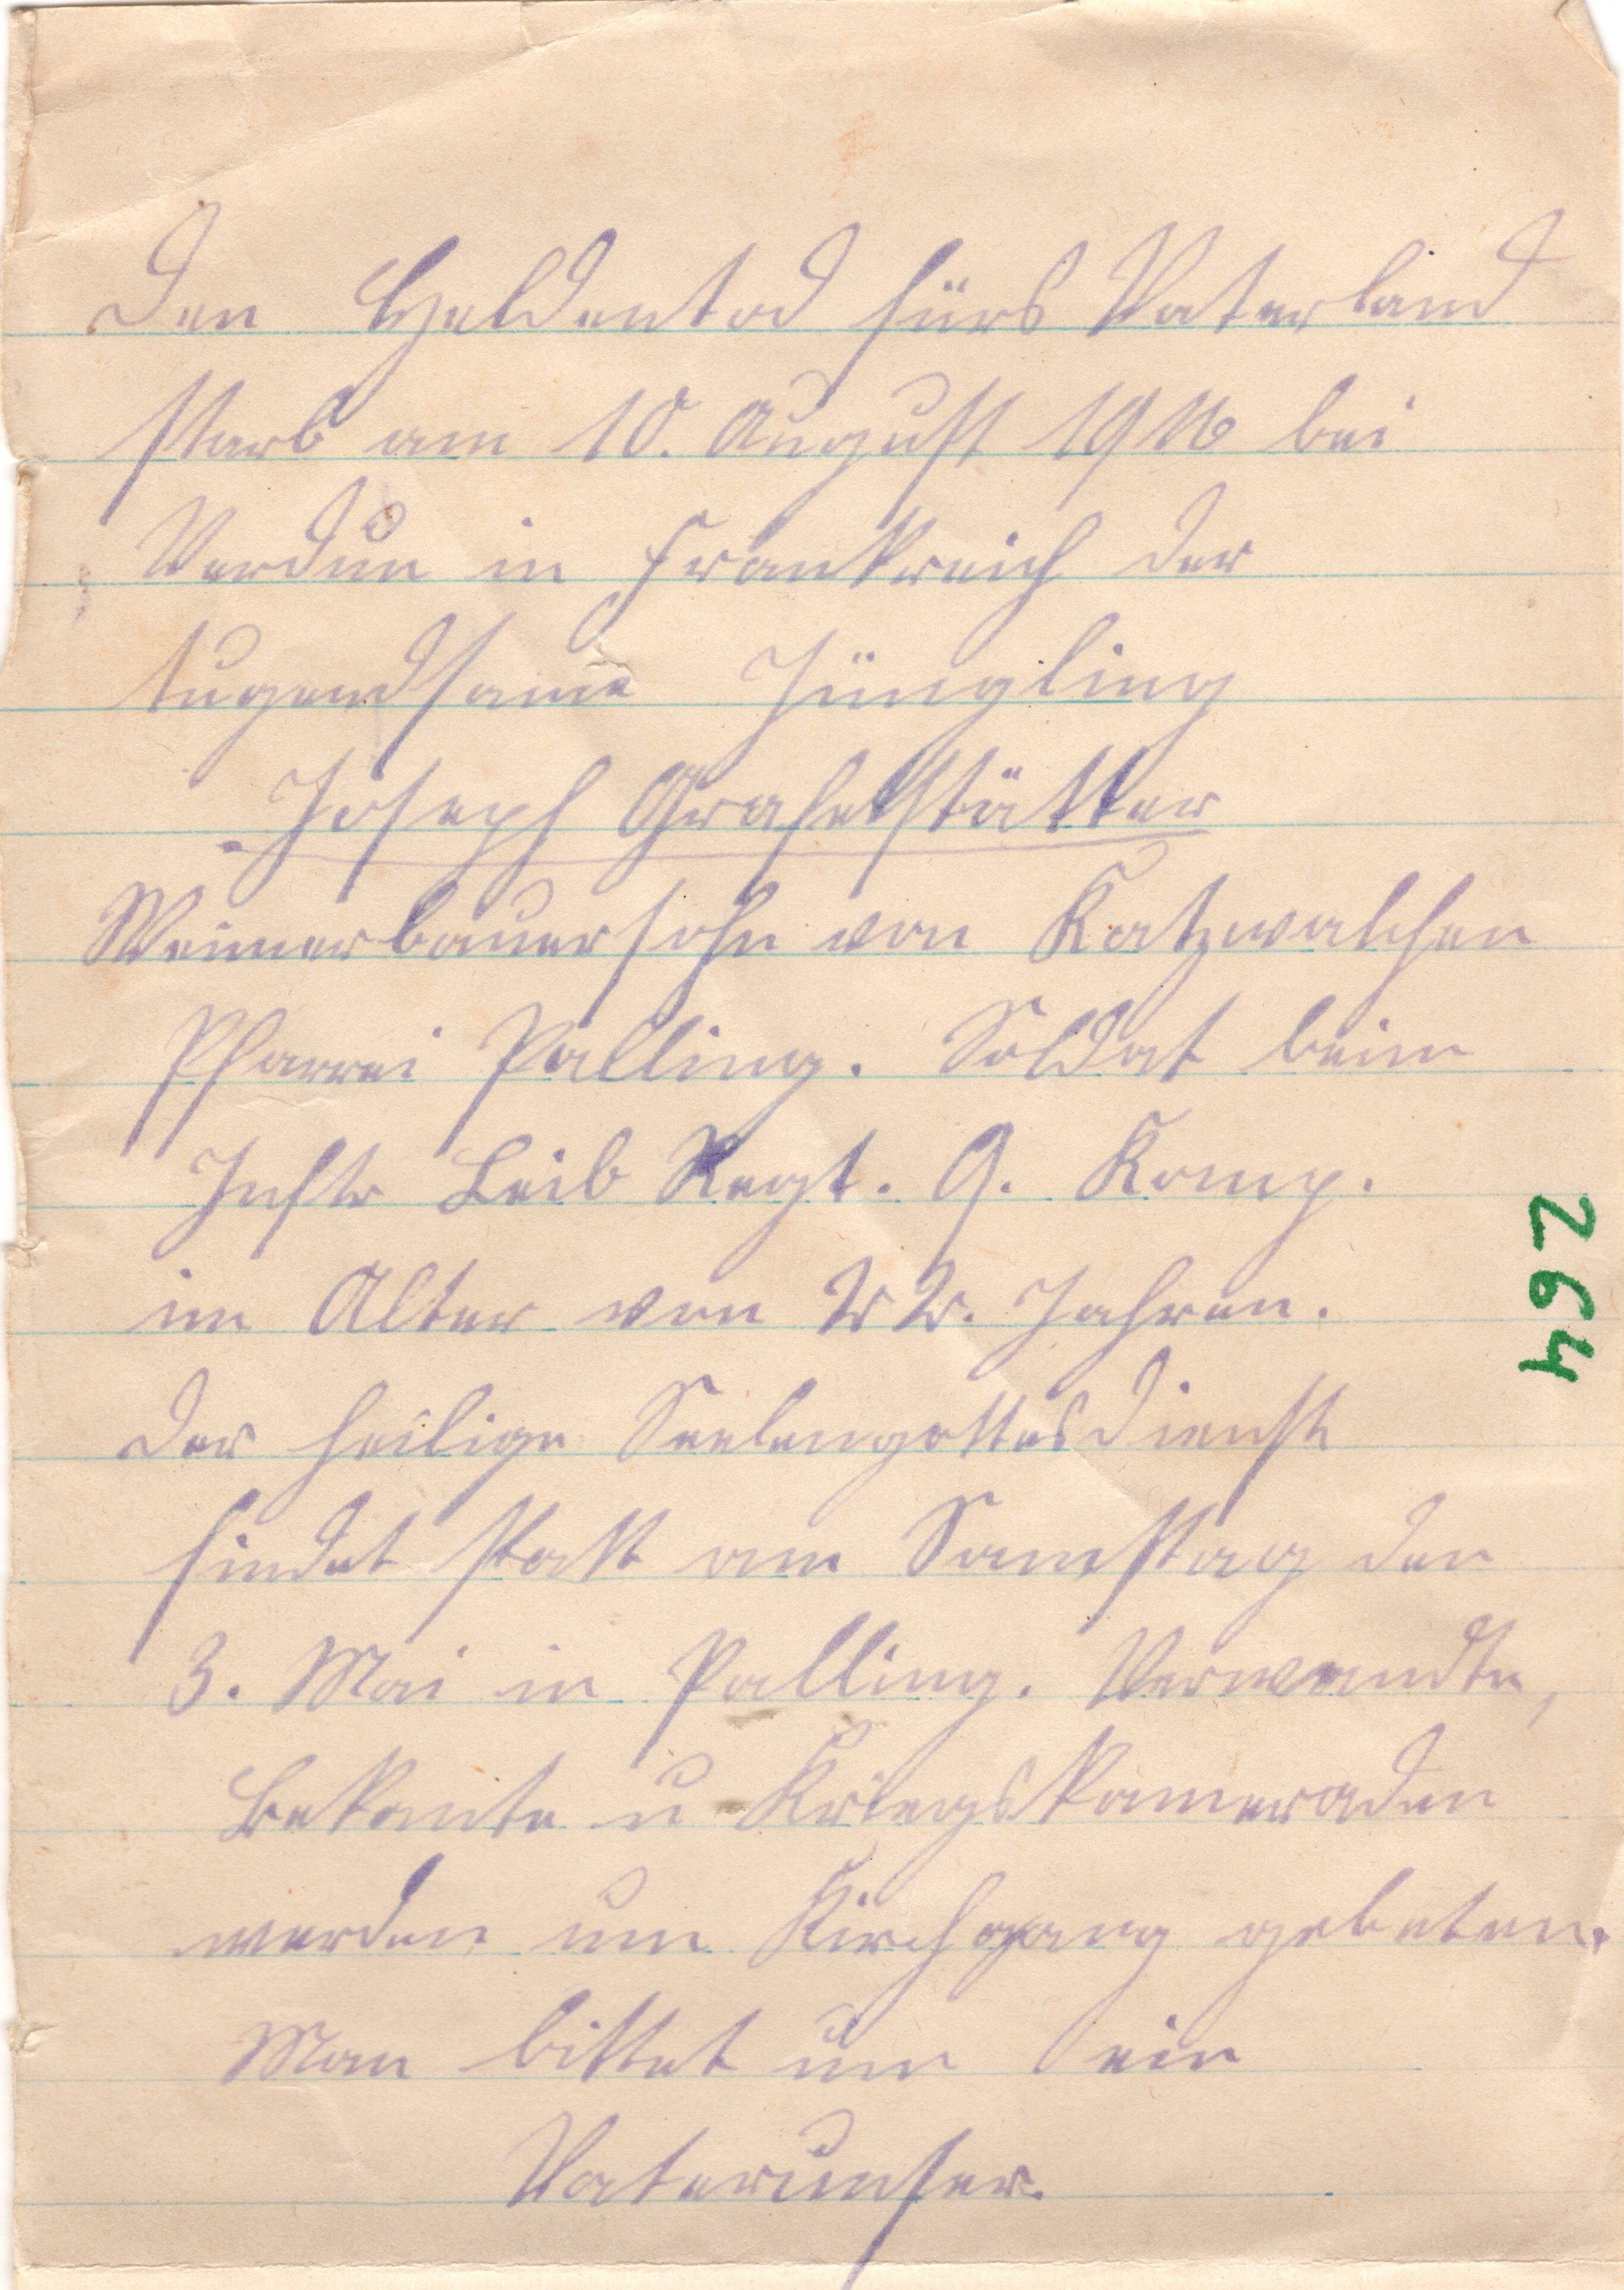 Den Heldentod fürs Vaterland
starb am 10. August 1916 bei
Verdun in Frankreich der
tugendsame Jüngling
Joseph Grafetstätter
Weimerbauersohn von Katzwalchen
Pfarrei Palling. Soldat beim
Inftr Leib Regt. 9. Komp.
im Alter von 22. Jahren.
Der heilige Seelengottesdienst
findet statt am Samstag den
3. Mai in Palling. Verwandte,
Bekante u Kriegskameraden
werden um Kirchgang gebeten.
Man bittet um ein
Vaterunser.
264